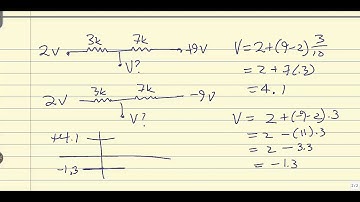 3k 7k
2v +9v
V?
3k 7k
2v -9v
V?
+4.1
-1.3
V = 2 + (9-2) 3/10
= 2 + 7(.3)
= 4.1
V = 2 + (-9-2).3
= 2 - (11).3
= 2 - 3.3
= -1.3